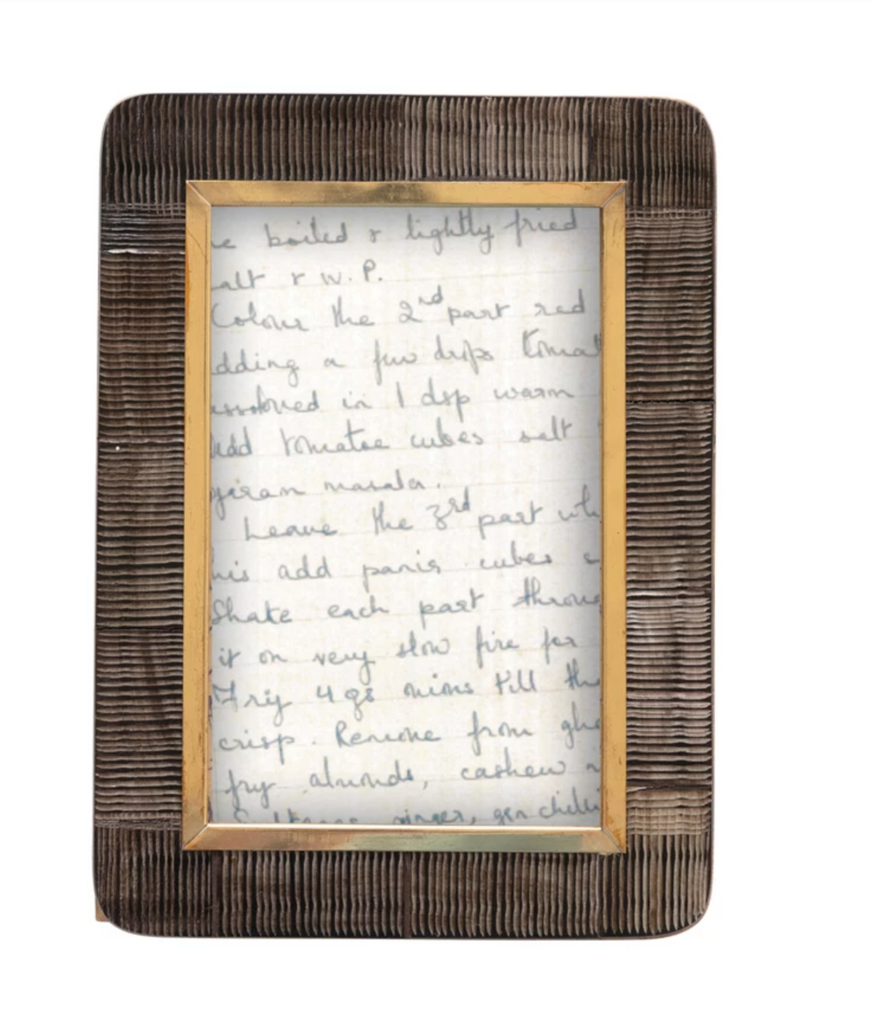 e boiled & lightly fried
alt & w.P.
Colour the 2nd part red
dding a few drops tomat
issolved in 1 dsp warm
Add tomatoe cubes salt
garam masala.
Leave the 3rd part wh
his add panir cubes
Shake each part throu
it on very slow fire for
Fry 4 gs onions till th
crisp. Remove from ghe
fry almonds, cashew n
Sultanas ginger, grn chilli